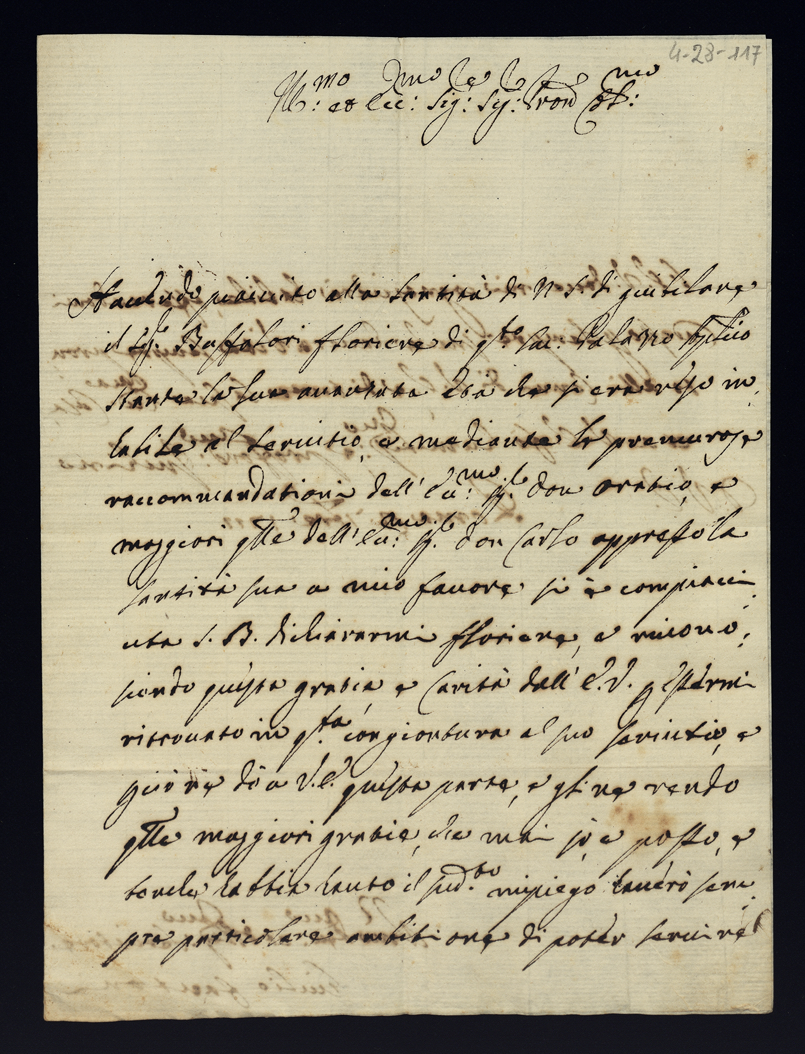 4-28-117
Ill:mo et Ecc:mo Sig:re Sig:re Pron Col:mo
Havendo piaciuto alla Santità di N. S. di giubilare
il Sg.r Buffalori floriere di q.to Sac: Palazzo
stante la sua avanzata età che si era reso in=
habile al servitio, e mediante le premurose
raccommandationi dell' Ecc:mo Sg.r don Oratio, e
maggiori q'lle dell' Ecc:mo Sg.r don Carlo appresso la
santità sua a mio favore si è compiaci=
uta S. B. dichiararmi floriere, e ricono=
scendo questa gratia, e carità dall' E. V. p essermi
ritrovato in q.sta congiontura al suo servitio, e
però ne dò a V. E. questa parte, e gli ne rendo
q'lle maggiori gratie, che mai so, e posso, e
benche habbia hauto il sud.to impiego haverò sem=
pre particolare ambitione di poter servire